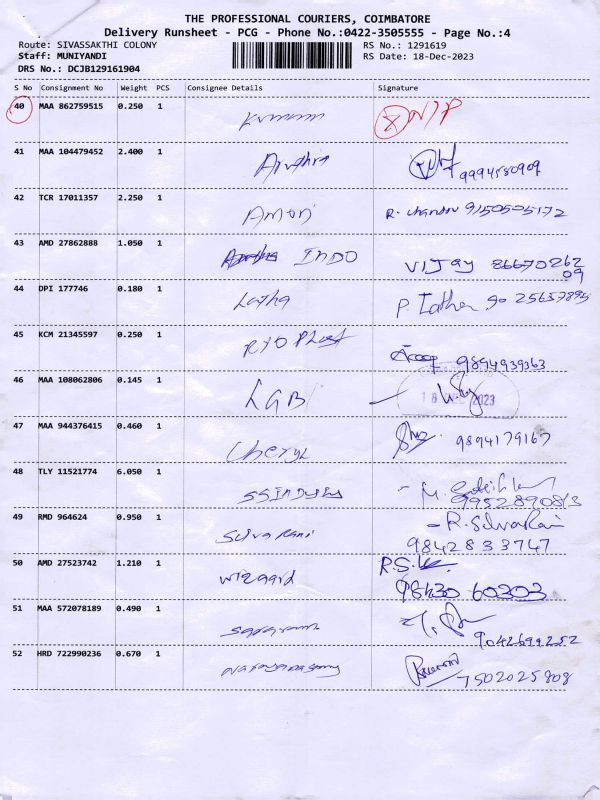 THE PROFESSIONAL COURIERS, COIMBATORE
Delivery Runsheet - PCG - Phone No.:0422-3505555 - Page No.:4
Route: SIVASSAKTHI COLONY RS No.: 1291619
Staff: MUNIYANDI RS Date: 18-Dec-2023
DRS No.: DCJB129161904
S No Consignment No Weight PCS Consignee Details Signature
40 MAA 862759515 0.250 1
41 MAA 104479452 2.400 1 9994580909
42 TCR 17011357 2.250 1 R. 9150505172
43 AMD 27862888 1.050 1 INDO VIJAY 8667026209
44 DPI 177746 0.180 1 Latha P.
45 KCM 21345597 0.250 1 9894939363
46 MAA 108062806 0.145 1 LGB 2023
47 MAA 944376415 0.460 1 Cheryl 9894179167
48 TLY 11521774 6.050 1 M.
49 RMD 964624 0.950 1 Selva Rani R. Selva Rani
9842833747
50 AMD 27523742 1.210 1 wizaard R.S.
98430 60303
51 MAA 572078189 0.490 1 9042699252
52 HRD 722990236 0.670 1 7502025808